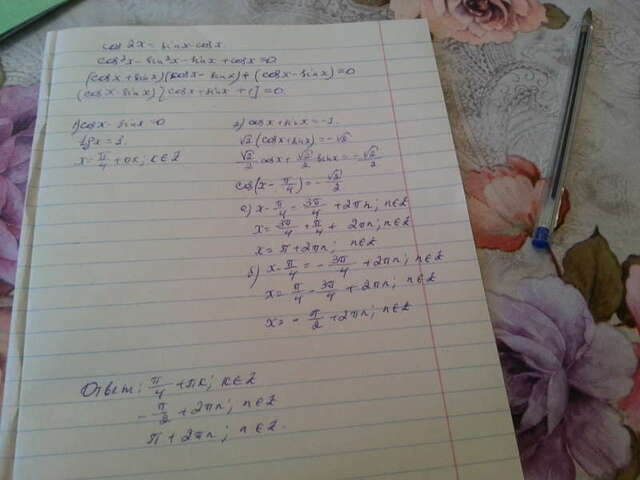 cos2x = sinx - cosx
cos²x - sin²x - sinx + cosx = 0
(cosx + sinx)(cosx - sinx) + (cosx - sinx) = 0
(cosx - sinx)[cosx + sinx + 1] = 0
1) cosx - sinx = 0
tgx = 1
x = π/4 + πk; k∈Z
2) cosx + sinx = -1
√2(cosx + sinx) = -√2
√2/2 cosx + √2/2 sinx = -√2/2
cos(x - π/4) = -√2/2
а) x - π/4 = 3π/4 + 2πn; n∈Z
x = 3π/4 + π/4 + 2πn; n∈Z
x = π + 2πn; n∈Z
б) x - π/4 = -3π/4 + 2πn; n∈Z
x = π/4 - 3π/4 + 2πn; n∈Z
x = -π/2 + 2πn; n∈Z
Ответ: π/4 + πk; k∈Z
-π/2 + 2πn; n∈Z
π + 2πn; n∈Z.